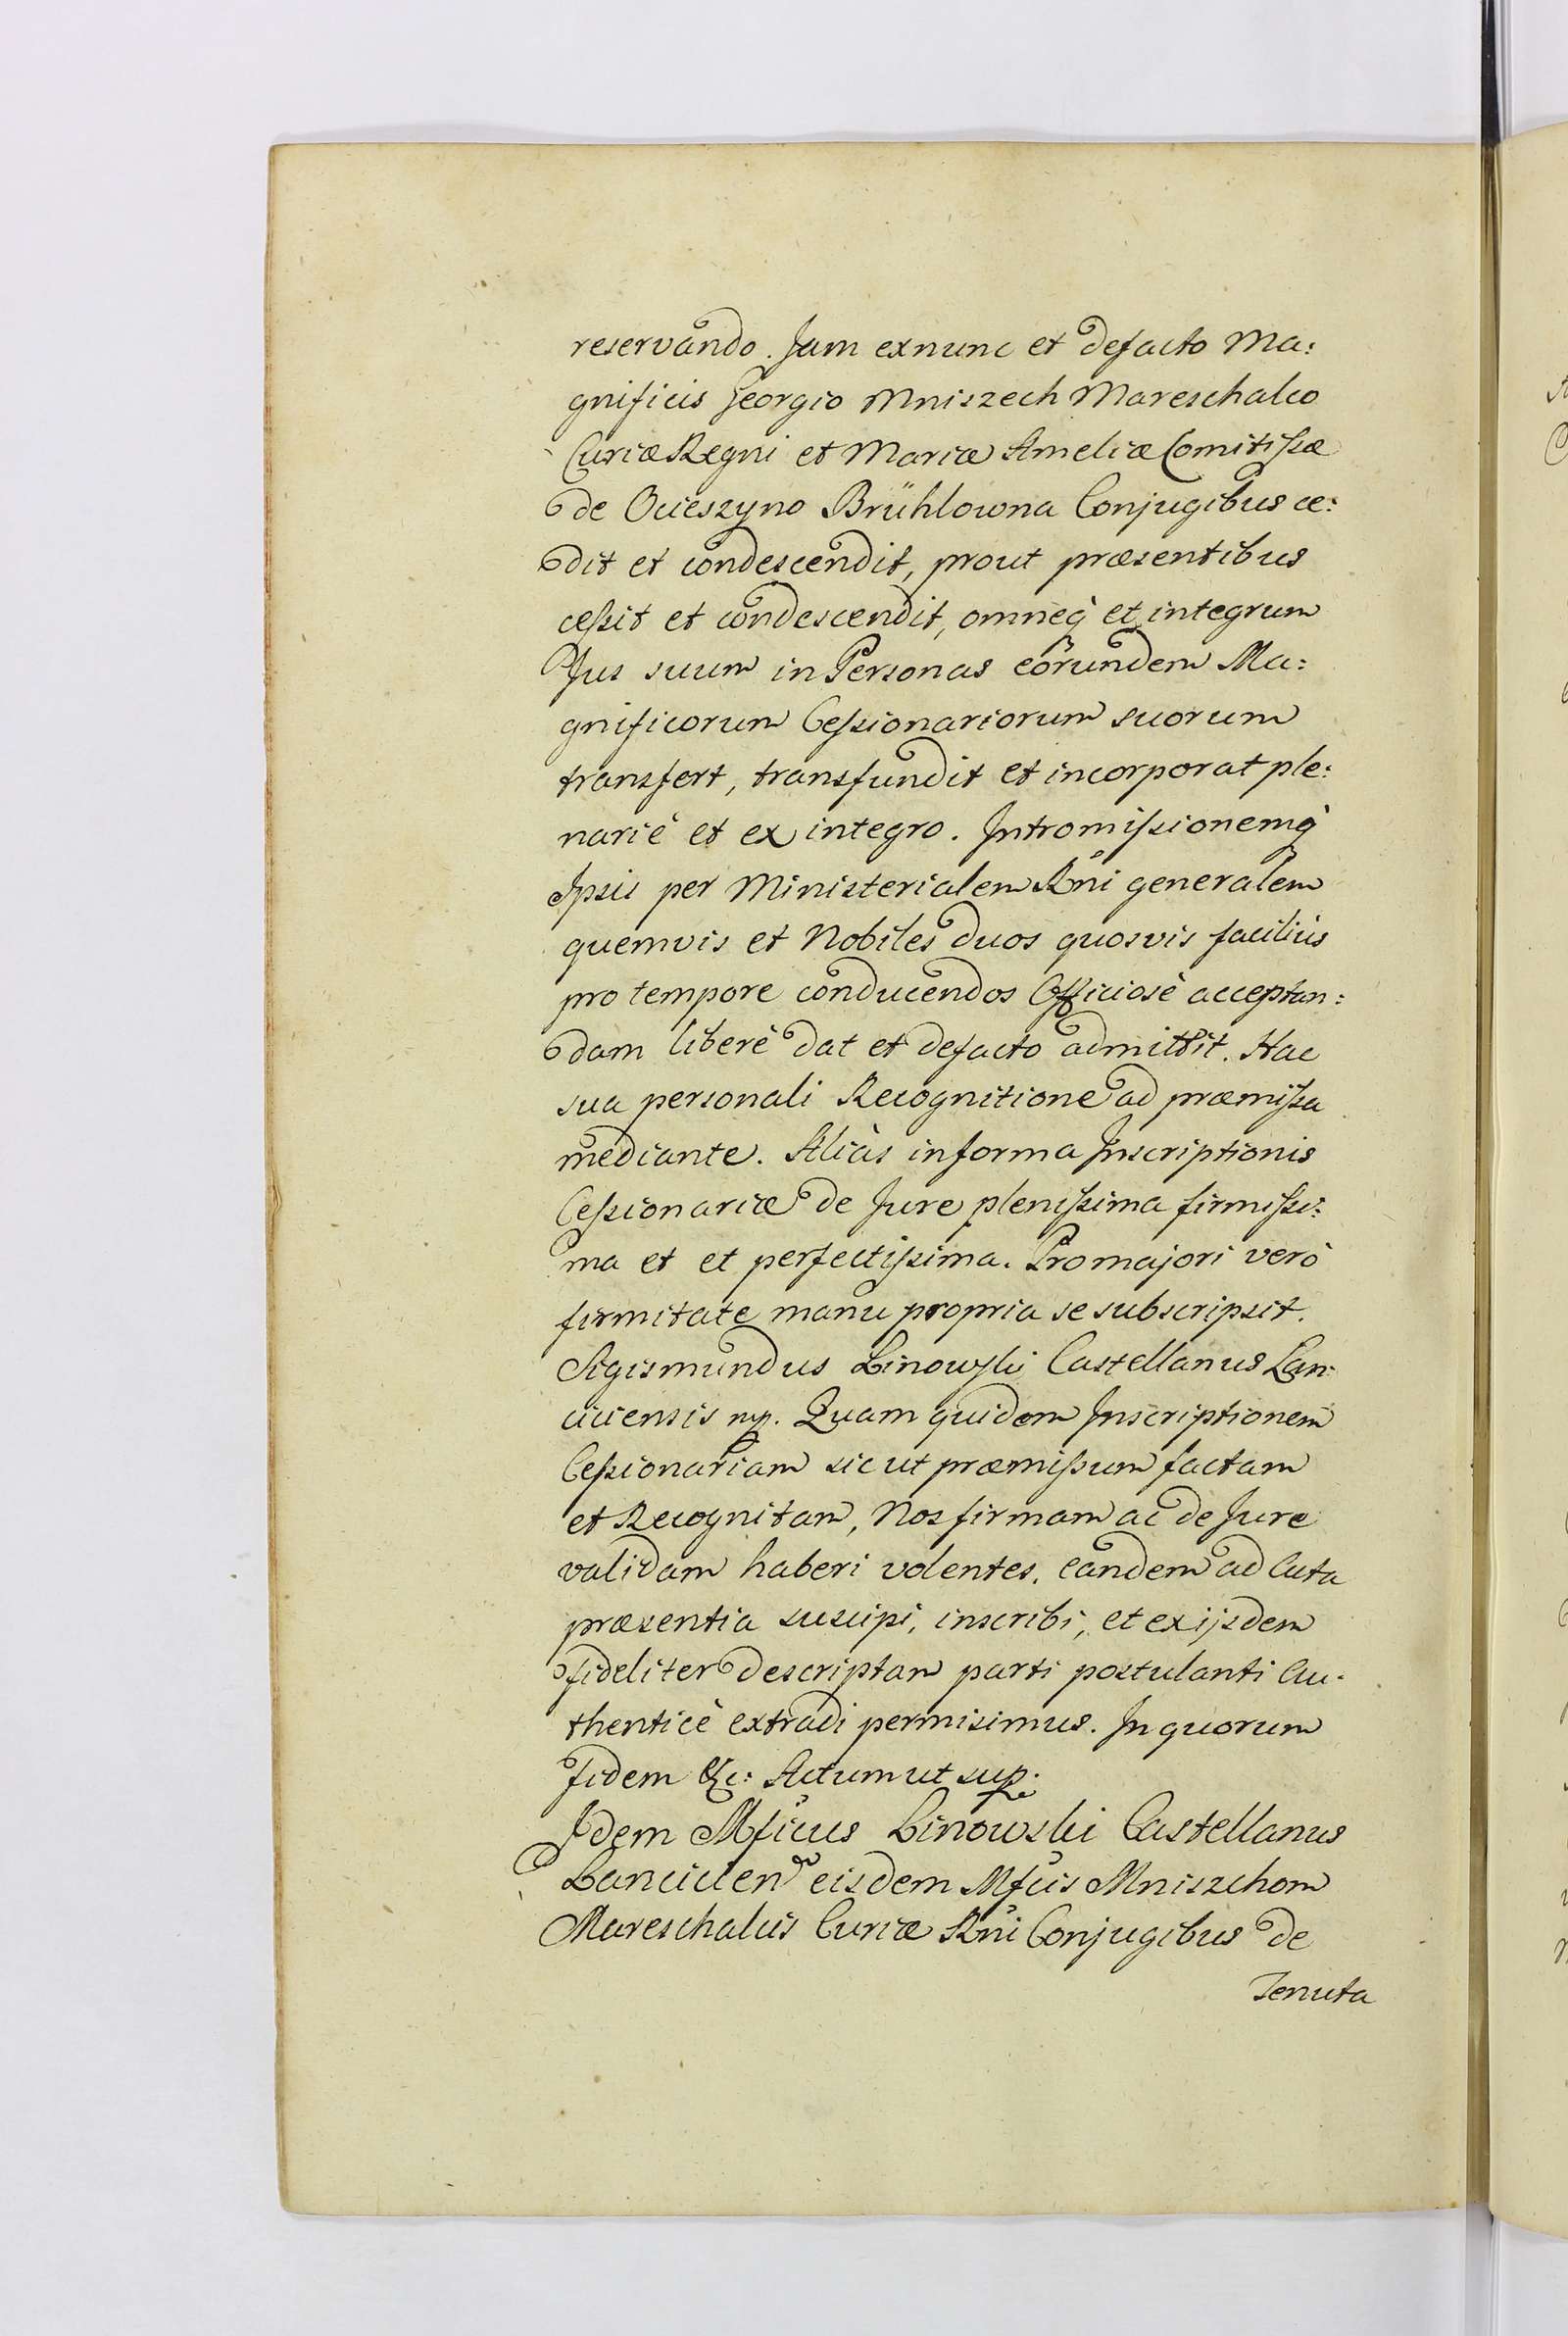 reservando. Jam exnunc et defacto Ma:
gnificis Georgio Mniszech Mareschalco
Curiæ Regni et Mariæ Ameliæ Comitissæ
de Ocieszyno Brühlowna Conjugibus ce:
dit et condescendit, prout præsentibus
cessit et condescendit, omneq̀ et integrum
Jus suum in Personas eorundem Ma:
gnificorum Cessionariorum suorum
transfert, transfundit et incorporat ple:
nariè et ex integro. Intromissionemq̀
Ipsis per Ministerialem Rñi generalem
quemvis et Nobiles duos quosvis faciliùs
pro tempore conducendos Officiosè acceptan:
dam liberè dat et defacto admittit. Hac
sua personali Recognitione ad præmissa
mediante. Aliàs in forma Inscriptionis
Cessionariæ de Jure plenissima firmissi:
ma et et perfectissima. Pro majori verò
firmitate manu propria se subscripsit.
Sigismundus Linowski Castellanus Lan:
ciciensis mp. Quam quidem Inscriptionem
Cessionariam sic ut præmissum factam
et Recognitam, Nos firmam ac de Jure
validam haberi volentes, eandem ad Acta
præsentia suscipi, inscribi, et ex ijsdem
fideliter descriptam parti postulanti Au:
thenticè extradi permisimus. In quorum
fidem &c: Actum ut sup.
Idem Mficus Linowski Castellanus
Lancicien eisdem Mfcis Mniszchom
Mareschalcis Curiæ Rñi Conjugibus de
Tenuta